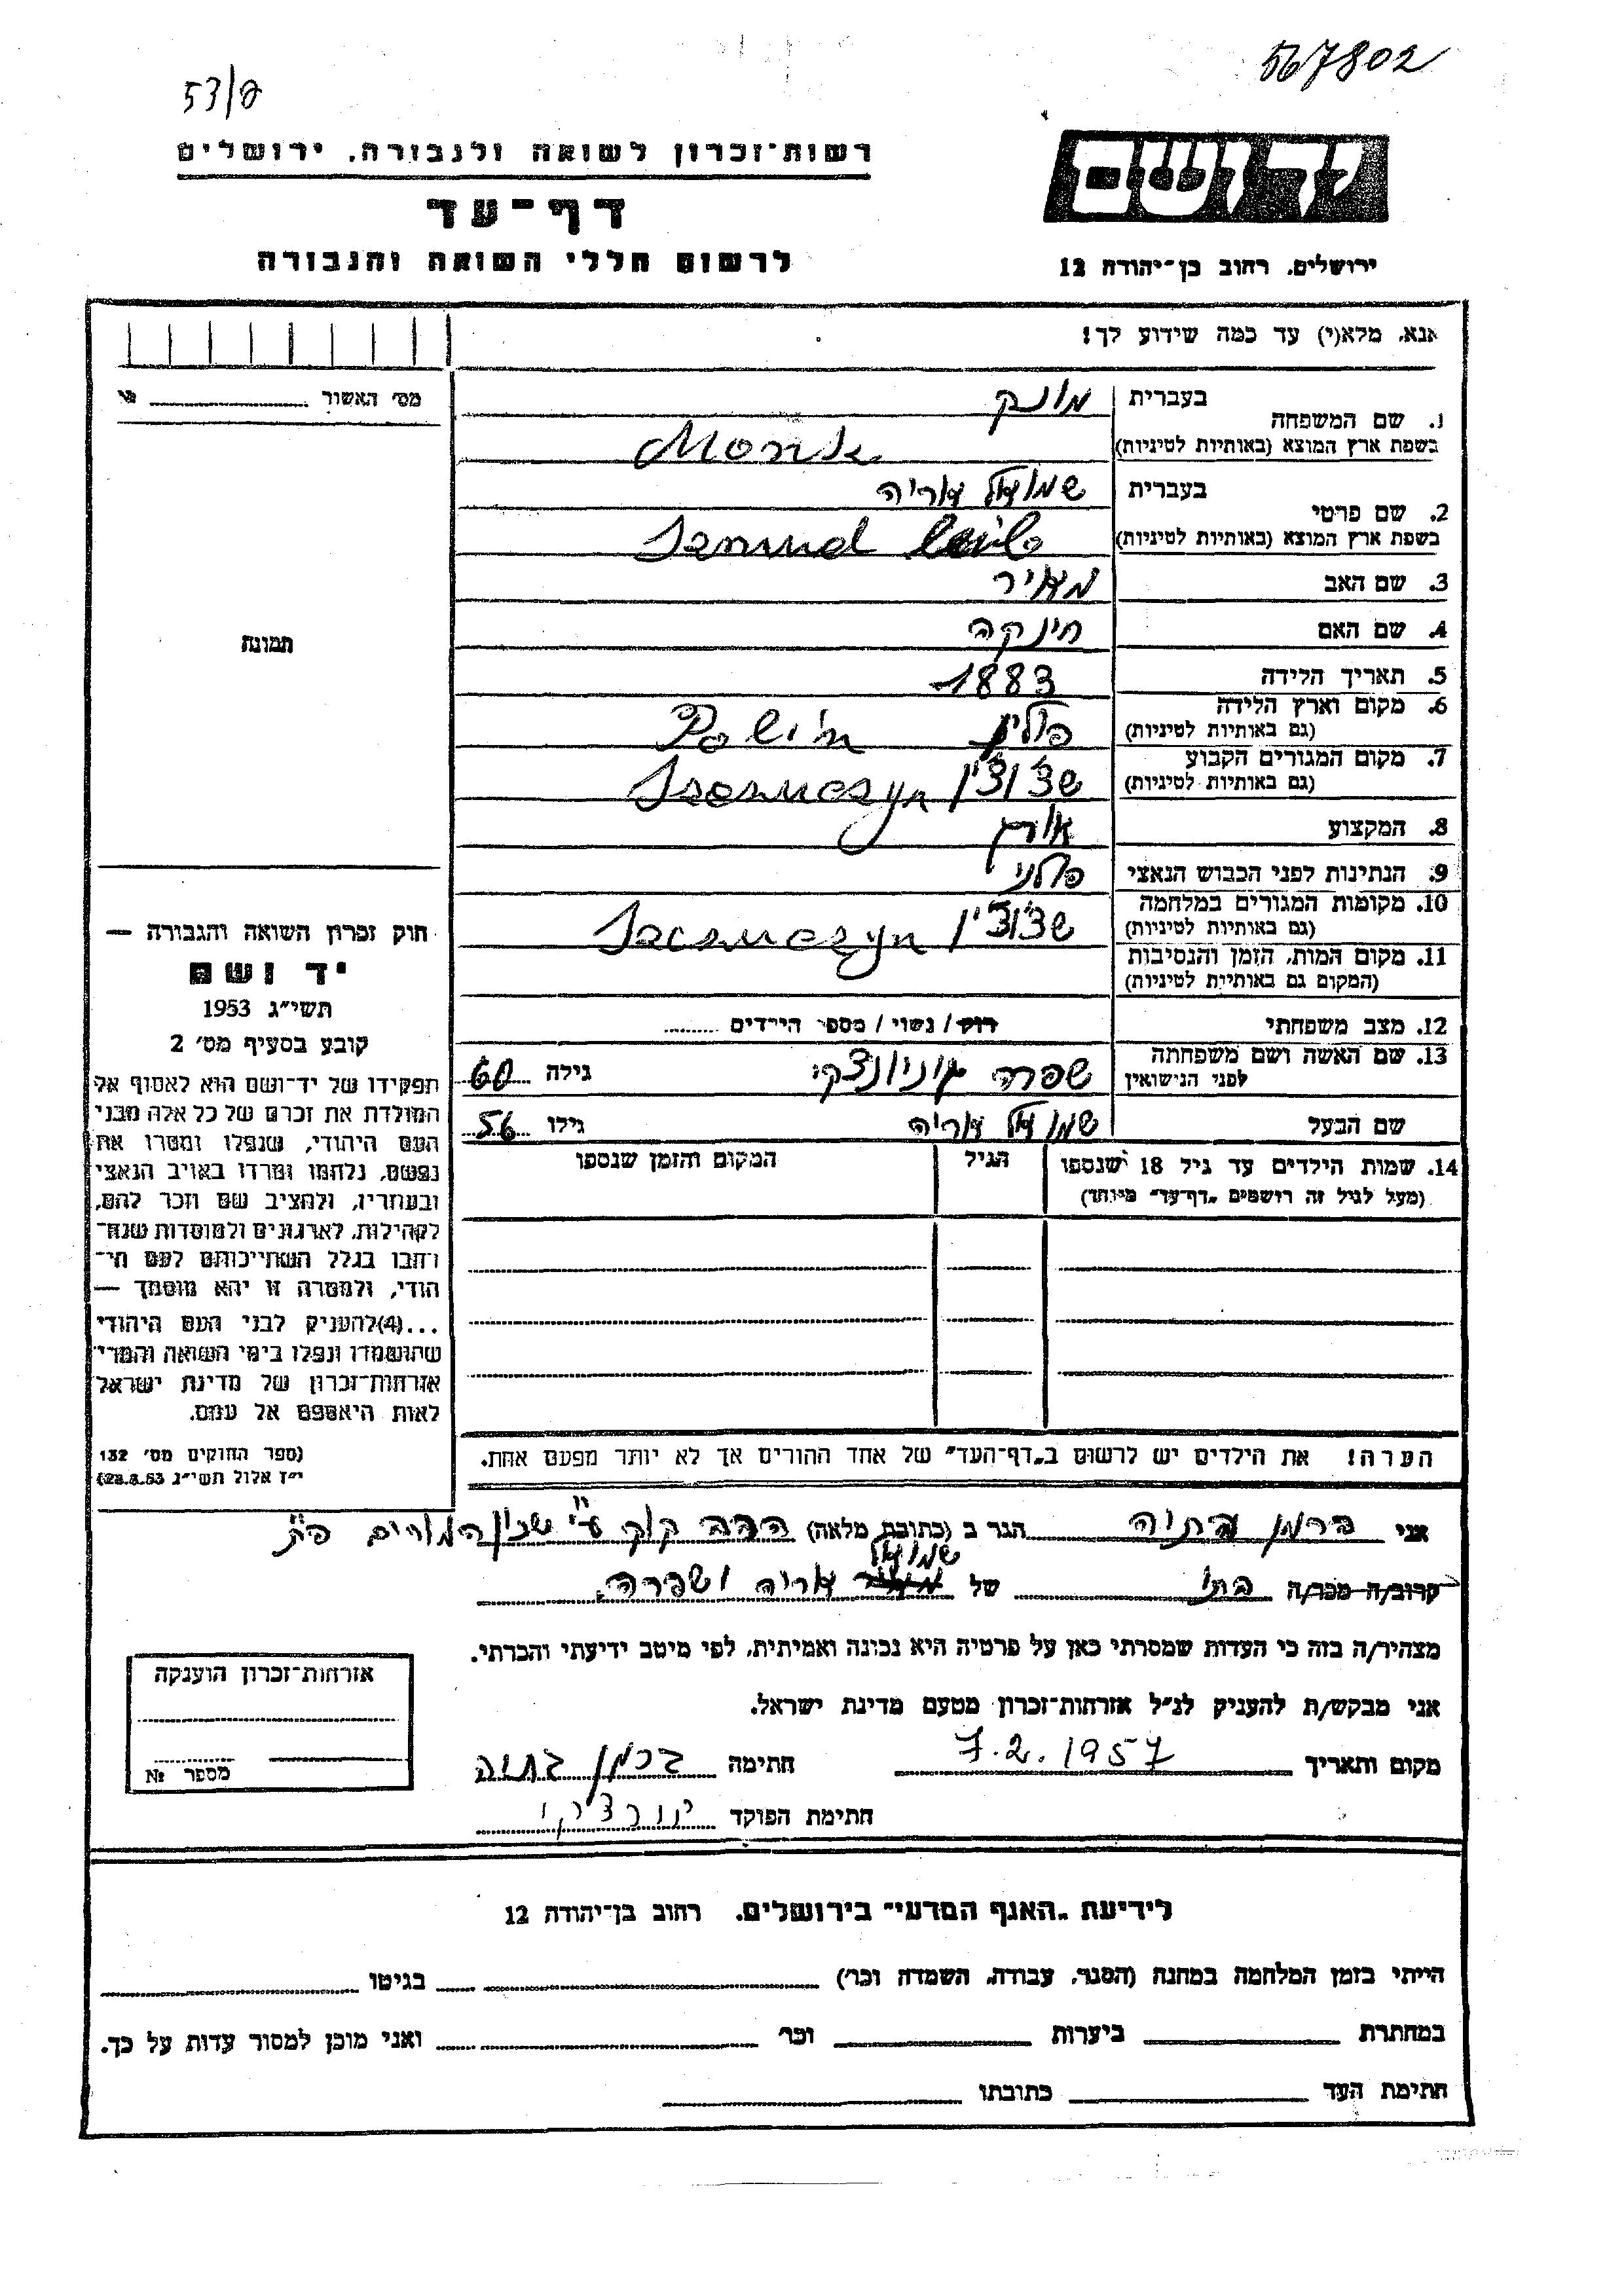 567802
53/פ
יד ושם
רשות־זכרון לשואה ולגבורה, ירושלים
דף־עד
לרשום חללי השואה והגבורה
ירושלים, רחוב בן־יהודה 12
אנא, מלא(י) עד כמה שידוע לך!
מס׳ האשור
בעברית מונק
1. שם המשפחה
בשפת ארץ המוצא (באותיות לטיניות) Monk
בעברית שמואל אריה
2. שם פרטי
בשפת ארץ המוצא (באותיות לטיניות)
3. שם האב מאיר
4. שם האם חינקה
תמונה
5. תאריך הלידה 1883
6. מקום וארץ הלידה
(גם באותיות לטיניות) פולין Polin
7. מקום המגורים הקבוע
(גם באותיות לטיניות) שצ׳וצ׳ין
8. המקצוע אורג
9. הנתינות לפני הכבוש הנאצי פולני
10. מקומות המגורים במלחמה
(גם באותיות לטיניות) שצ׳וצ׳ין
11. מקום המות, הזמן והנסיבות
(המקום גם באותיות לטיניות)
12. מצב משפחתי רוק/ נשוי/ מספר הילדים
13. שם האשה ושם משפחתה
לפני הנישואין שפרה גוניונצקי גילה 60
שם הבעל שמואל אריה גילו 56
14. שמות הילדים עד גיל 18 שנספו הגיל המקום והזמן שנספו
(מעל לגיל זה רושמים „דף־עד״ מיוחד)
חוק זכרון השואה והגבורה —
יד ושם
תשי״ג 1953
קובע בסעיף מס׳ 2
תפקידו של יד־ושם הוא לאסוף אל
המולדת את זכרם של כל אלה מבני
העם היהודי, שנפלו ומסרו את
נפשם, נלחמו ומרדו באויב הנאצי
ובעוזריו, ולהציב שם וזכר להם,
לקהילות, לארגונים ולמוסדות שנח־
רבו בגלל השתייכותם לעם הי־
הודי, ולמטרה זו יהא מוסמך —
...(4)להעניק לבני העם היהודי
שהושמדו ונפלו בימי השואה והמרי
אזרחות־זכרון של מדינת ישראל
לאות היאספם אל עמם.
(ספר החוקים מס׳ 132
י״ז אלול תשי״ג 28.8.53)
הערה! את הילדים יש לרשום ב„דף־העד״ של אחד ההורים אך לא יותר מפעם אחת.
אני ברמן בתיה הגר ב (כתובת מלאה) הרב קוק ע״י שכון המורים פ״ת
שמואל
קרוב/ה מכר/ה בתו של אריה ושפרה
מצהיר/ה בזה כי העדות שמסרתי כאן על פרטיה היא נכונה ואמיתית, לפי מיטב ידיעתי והכרתי.
אני מבקש/ת להעניק לנ״ל אזרחות־זכרון מטעם מדינת ישראל.
מקום ותאריך 7.2.1957 חתימה ברמן בתיה
חתימת הפוקד
אזרחות־זכרון הוענקה
מספר №
לידיעת „האגף המדעי״ בירושלים, רחוב בן־יהודה 12
הייתי בזמן המלחמה במחנה (הסגר, עבודה, השמדה וכו׳) בגיטו
במחתרת ביערות וכו׳ ואני מוכן למסור עדות על כך.
חתימת העד כתובתו